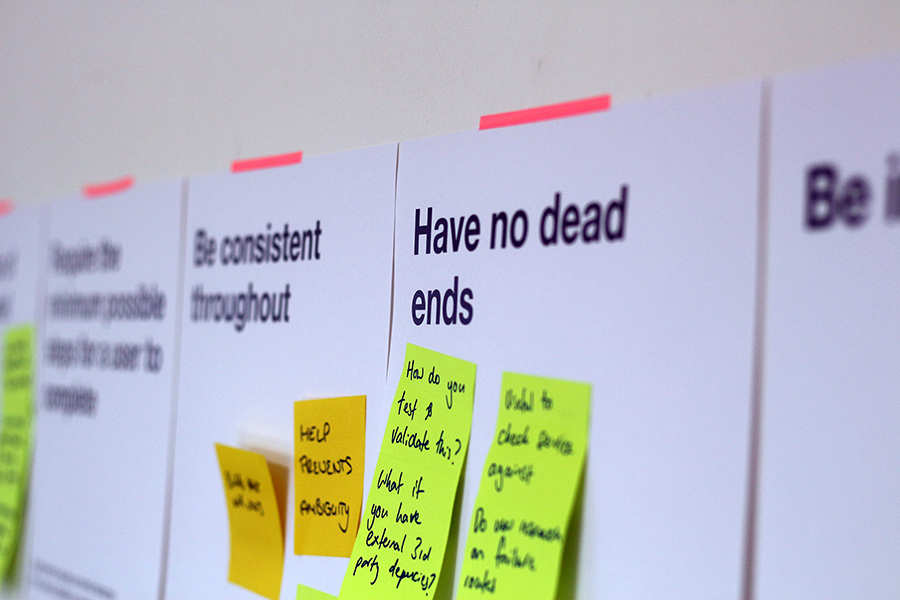 Require the
minimum possible
steps for a user to
complete
Be consistent
throughout
HELP
PREVENTS
AMBGUITY
Have no dead
ends
How do you
test &
validate this?
What if
you have
external 3rd
party depencies?
Useful to
check services
against
Do new research
on failure
routes
Be